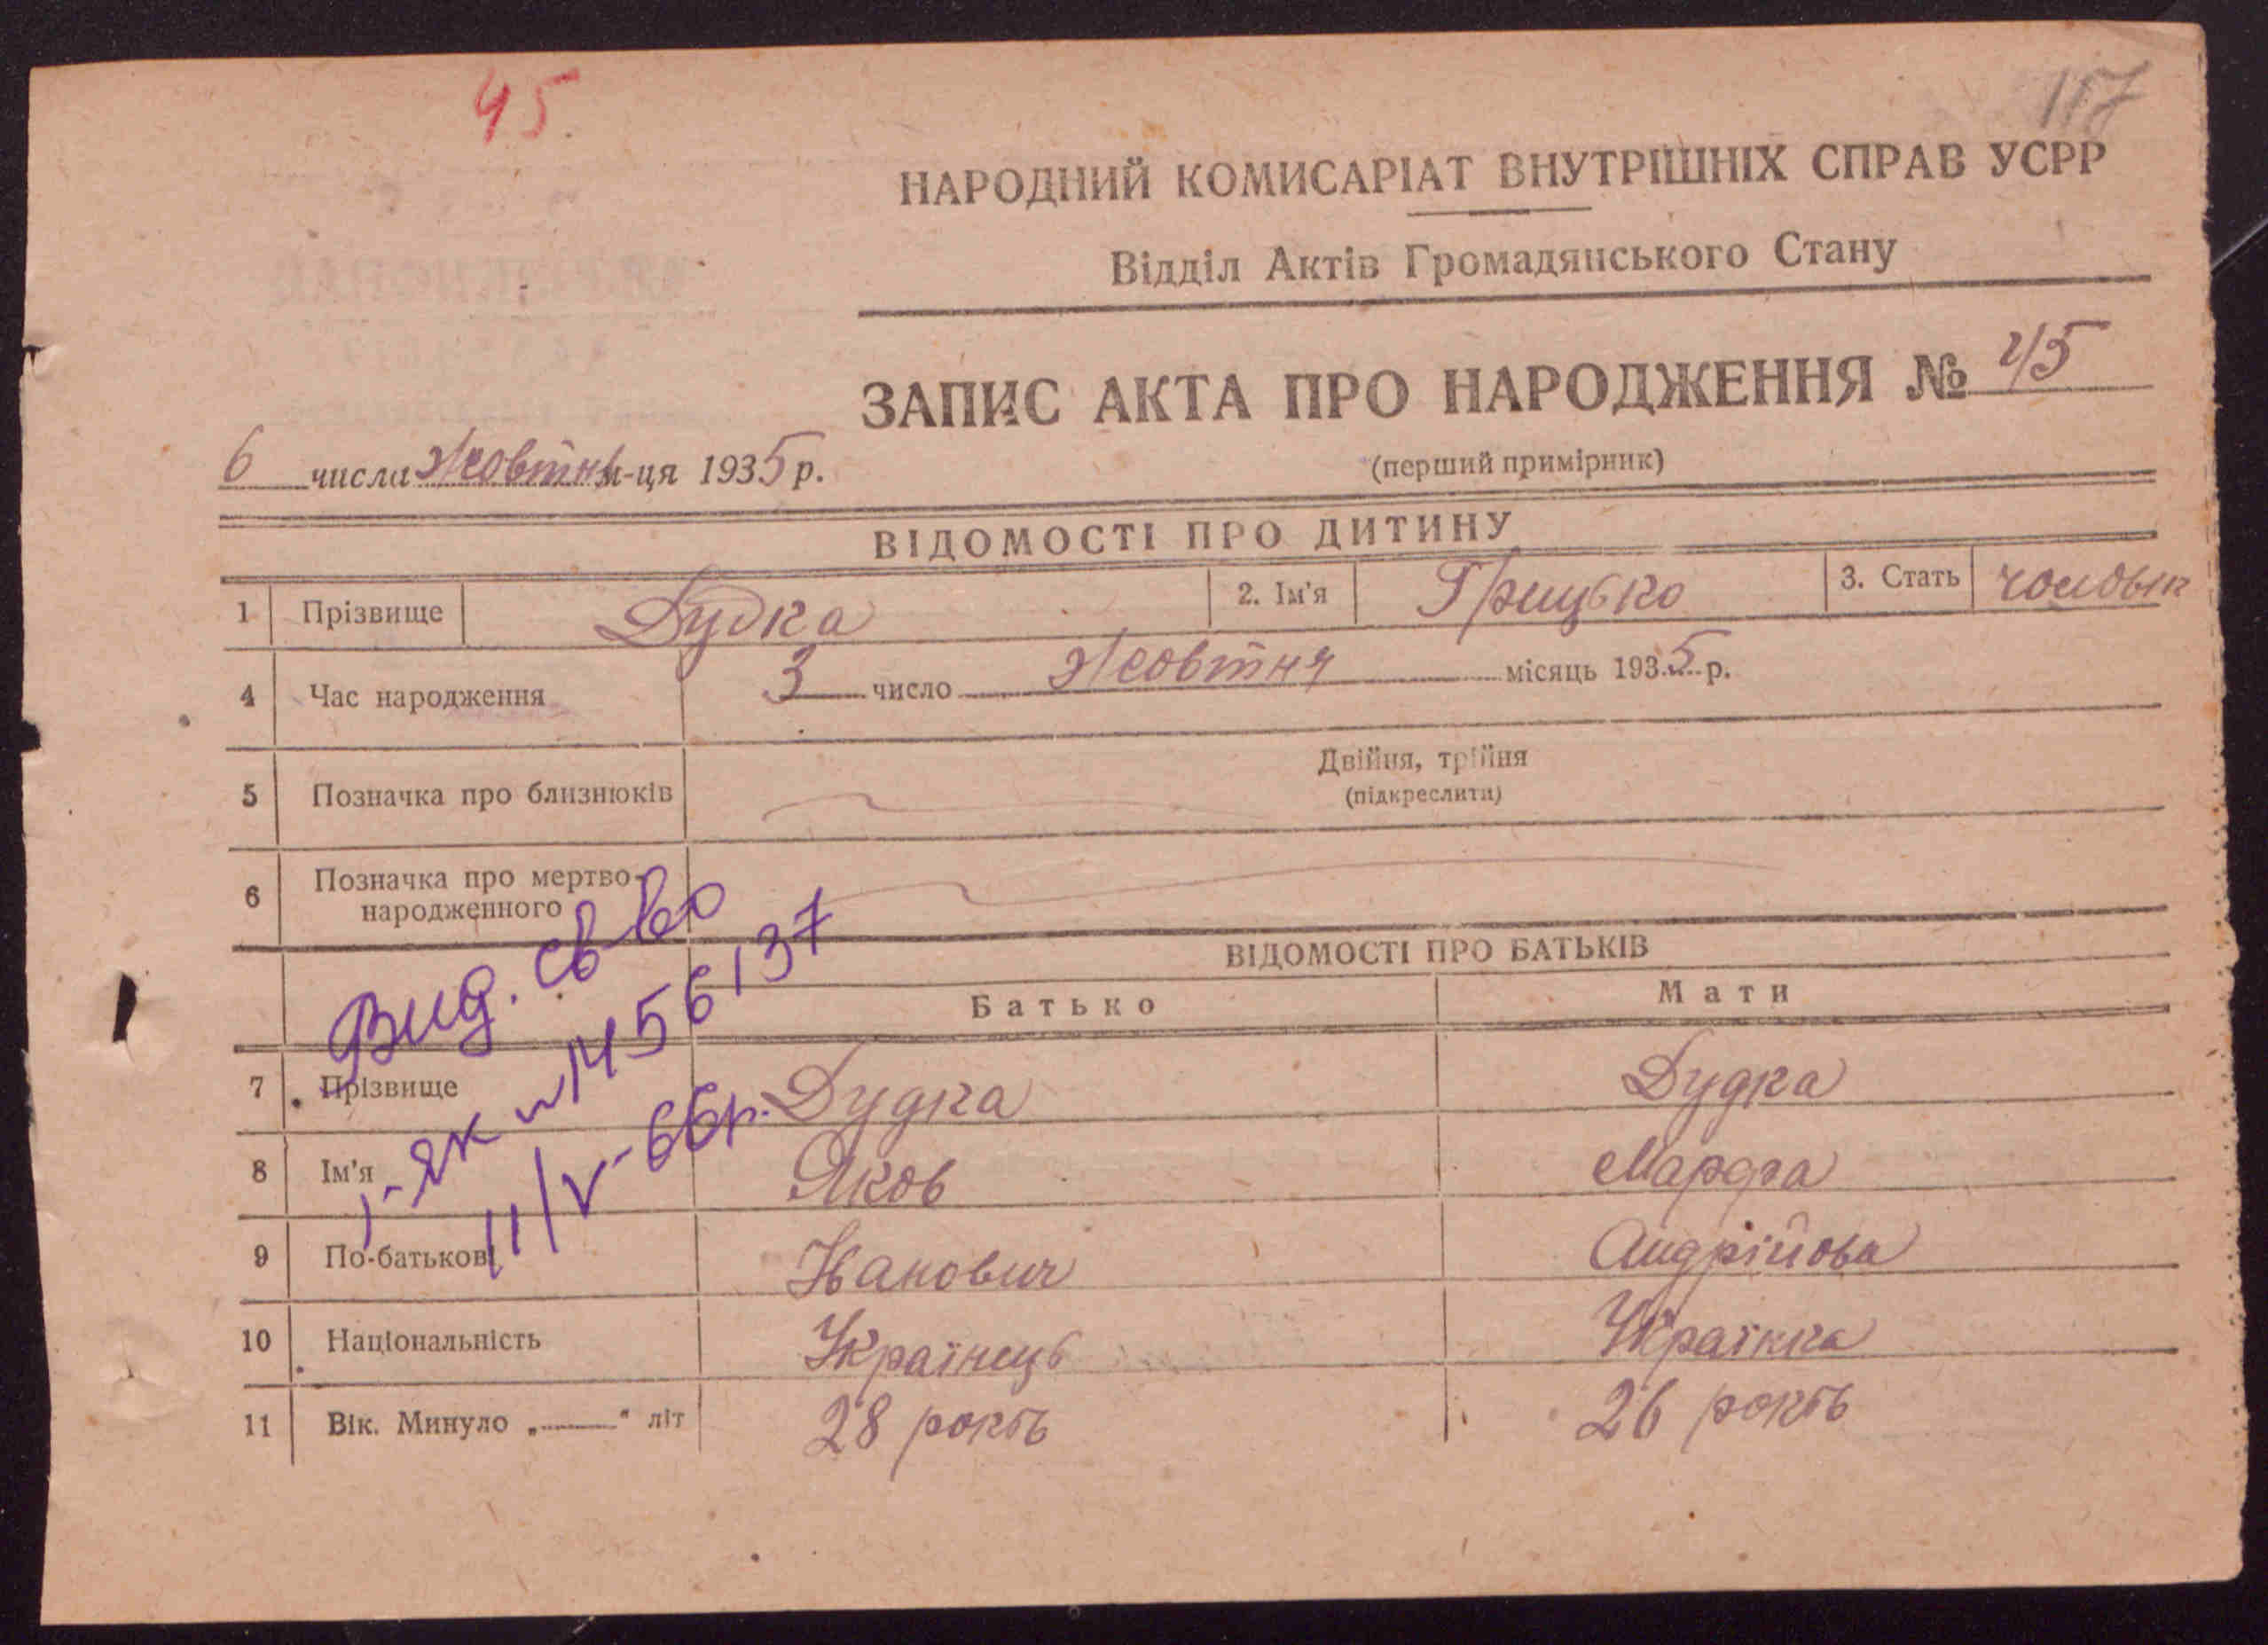 45.
117
НАРОДНИЙ КОМИСАРІАТ ВНУТРІШНІХ СПРАВ УСРР
Відділ Актів Громадянського Стану
ЗАПИС АКТА ПРО НАРОДЖЕННЯ № 45
(перший примірник)
6 числа Жовтня м-ця 1935 р.
ВІДОМОСТІ ПРО ДИТИНУ
1 Прізвище Дудка 2. Ім'я Грицько 3. Стать
4 Час народження 3 число Жовтня місяць 1935 р.
5 Позначка про близнюків Двійня, трійня
(підкреслити)
6 Позначка про мертво-
народженного
ВІДОМОСТІ ПРО БАТЬКІВ
Батько Мати
7 Прізвище Дудка Дудка
8 Ім'я Яков Марфа
9 По-батькові Иванович Андрійова
10 Національність Українець Українка
11 Вік. Минуло „ “ літ 28 років 26 років
Вид. св-во
І-ЯК № 456137
11/V-66р.